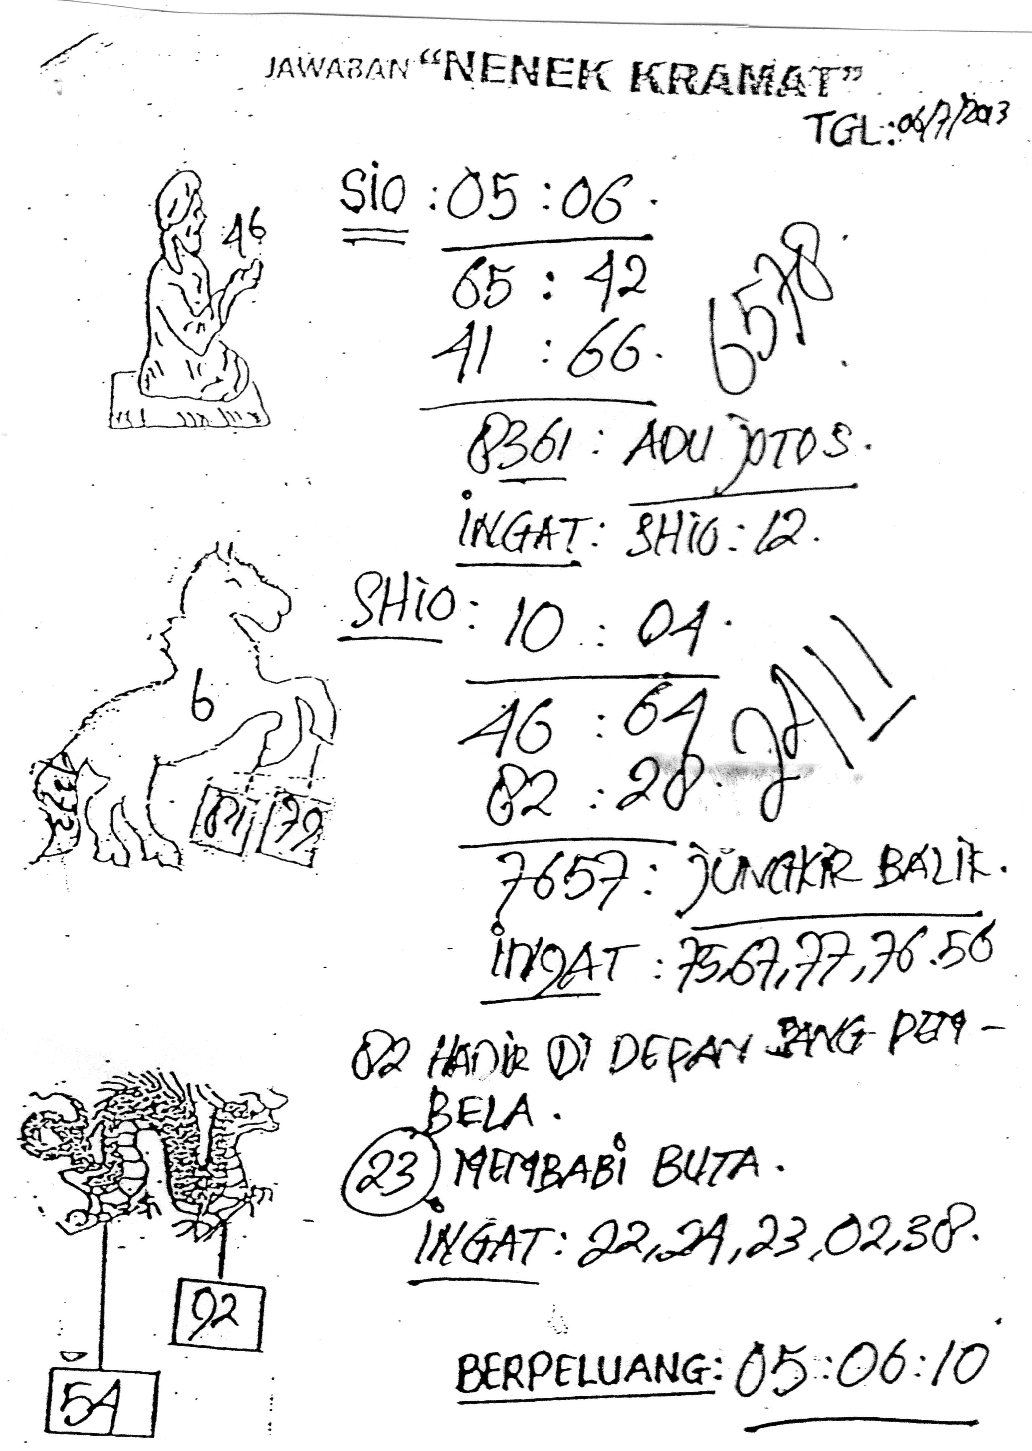 JAWABAN "NENEK KRAMAT"
TGL: 06/7/2013
SIO : 05 : 06.
46
65 : 42
41 : 66.
6578
8361 : ADU JOTOS.
INGAT : SHIO : 12.
SHIO : 10 : 04.
6
46 : 64
2411
82 : 28.
79
7657 : JUNGKIR BALIK.
INGAT : 75,67,77,76.56
82 HADIR DI DEPAN SANG PEM-
BELA.
23 MEMBABI BUTA.
INGAT : 22,24,23,02,38.
92
BERPELUANG : 05 : 06 : 10
54